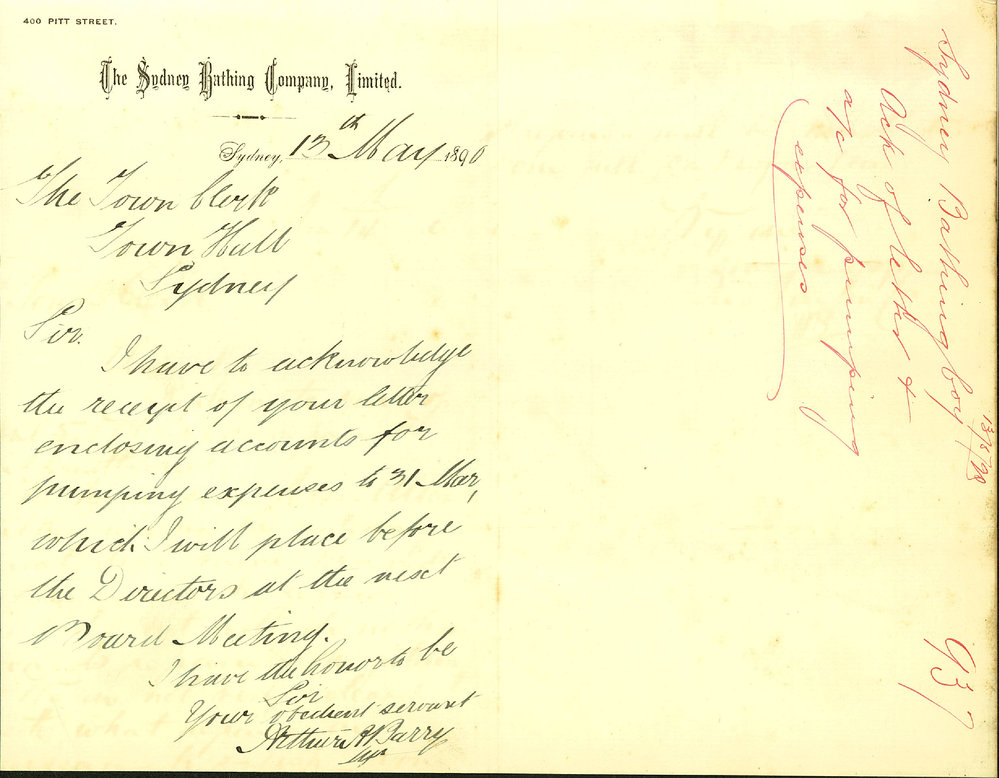 400 PITT STREET.
The Sydney Bathing Company, Limited.
Sydney, 13th May 1890
The Town Clerk
Town Hall
Sydney
Sir.
I have to acknowledge
the receipt of your letter
enclosing accounts for
pumping expenses to 31 Mar,
which I will place before
the Directors at the next
Board Meeting.
I have the honor to be
Sir
Your obedient servant
Arthur A Barry
Sydney Bathing Coy
13/5/90
Ack of letter +
a/c for pumping
expenses
937